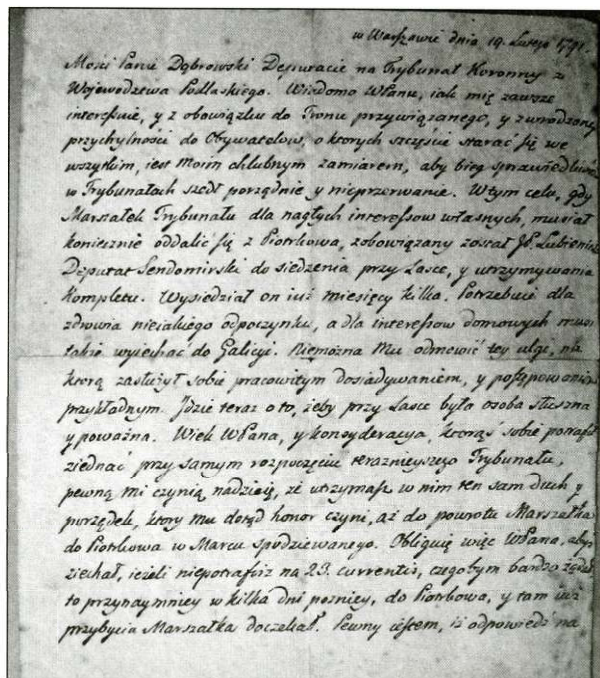 w Warszawie dnia 19. Lutego 1791.
Mości Panie Dąbrowski Deputacie na Trybunał Koronny z
Wojewodzewa Podlaskiego. Wiadomo WPanu, iak mię zawsze
interessuie, y z obowiązku do Tronu przywiązanego, y z wrodzoney
przychylności do Obywatelow, o ktorych szczęście starać się we
wszytkim, iest Moim chlubnym zamiarem, aby bieg sprawiedliwości
w Trybunałach szedł porządnie y nieprzerwanie. W tym celu, gdy
Marszałek Trybunału dla nagłych interessow własnych, musiał
koniecznie oddalić się z Piotrkowa, zobowiązany został JP. Lubieniecki
Deputat Sendomirski do siedzenia przy Lasce, y utrzymywania
Kompletu. Wysiedział on iuż miesięcy kilka. Potrzebuie dla
zdrowia nieiakiego odpoczynku, a dla interessow domowych musi
także wyiechać do Galicyi. Niemożna Mu odmowić tey ulgi, na
ktorą zasłużył sobie pracowitym dosiadywaniem, y postępowaniem
przykładnym. Jdzie teraz o to, żeby przy Lasce była osoba słuszna
y poważna. Wiek WPana, y konsyderacya, ktorąś sobie potrafił
ziednać przy samym rozpoczęciu teraznieyszego Trybunału,
pewną mi czynią nadzieię, że utrzymasz w nim ten sam duch y
porządek, ktory mu dotąd honor czyni, aż do powrotu Marszałka
do Piotrkowa w Marcu spodziewanego. Obliguię więc WPana, abyś
ziechał, ieżeli niepotrafisz na 23. currentis, czegobym bardzo żądał
to przynaymniey w kilka dni pozniey, do Piotrkowa, y tam iuż
przybycia Marszałka doczekał. Pewny iestem, iż odpowiedź na